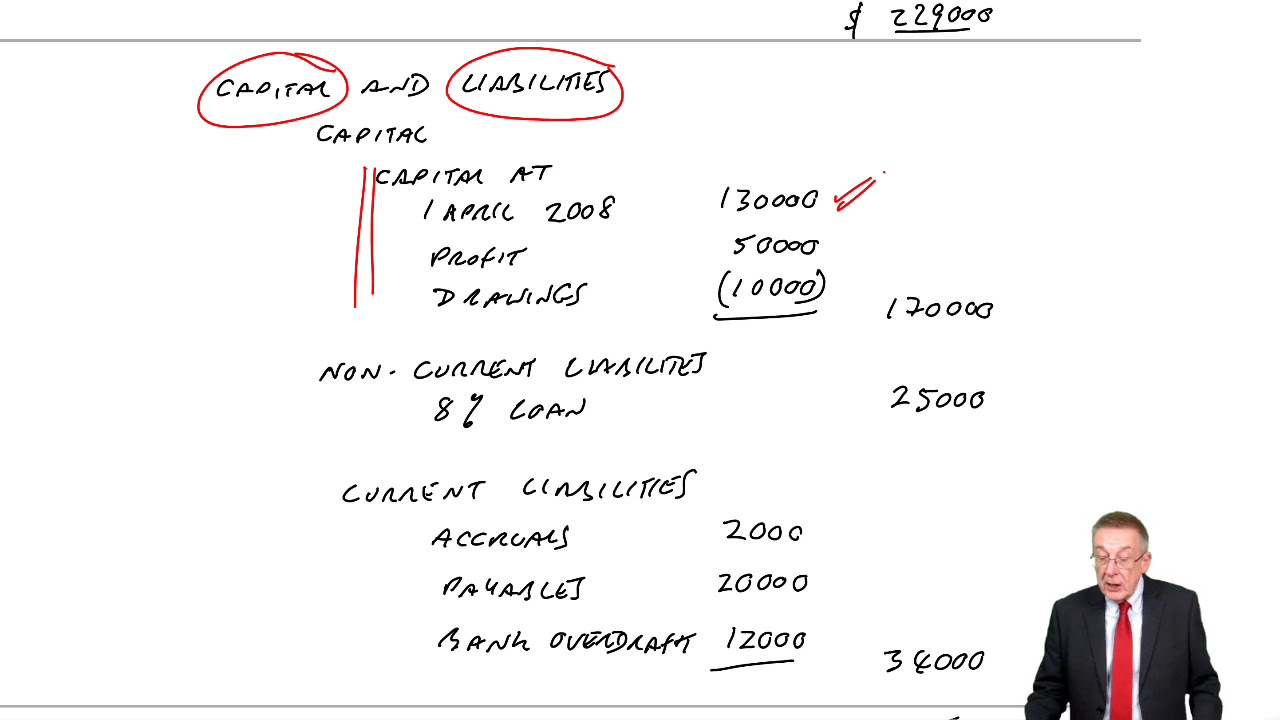 $ 229000
CAPITAL AND LIABILITIES
CAPITAL
CAPITAL AT
1 APRIL 2008 130000
PROFIT 50000
DRAWINGS (10000) 170000
NON-CURRENT LIABILITES
8% LOAN 25000
CURRENT LIABILITIES
ACCRUALS 2000
PAYABLES 20000
BANK OVERDRAFT 12000 34000